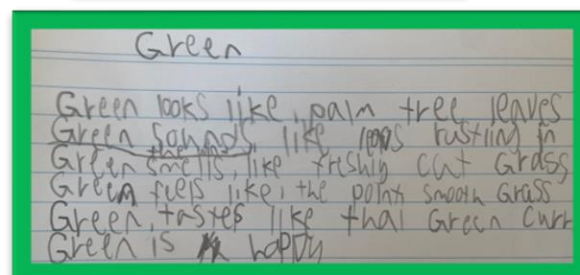 Green
Green looks like, palm tree leaves
Green sounds, like rustling in
Green smells, like freshly cut Grass
Green feels like, the pointy smooth Grass
Green, tastes like thai Green Curr
Green is happy